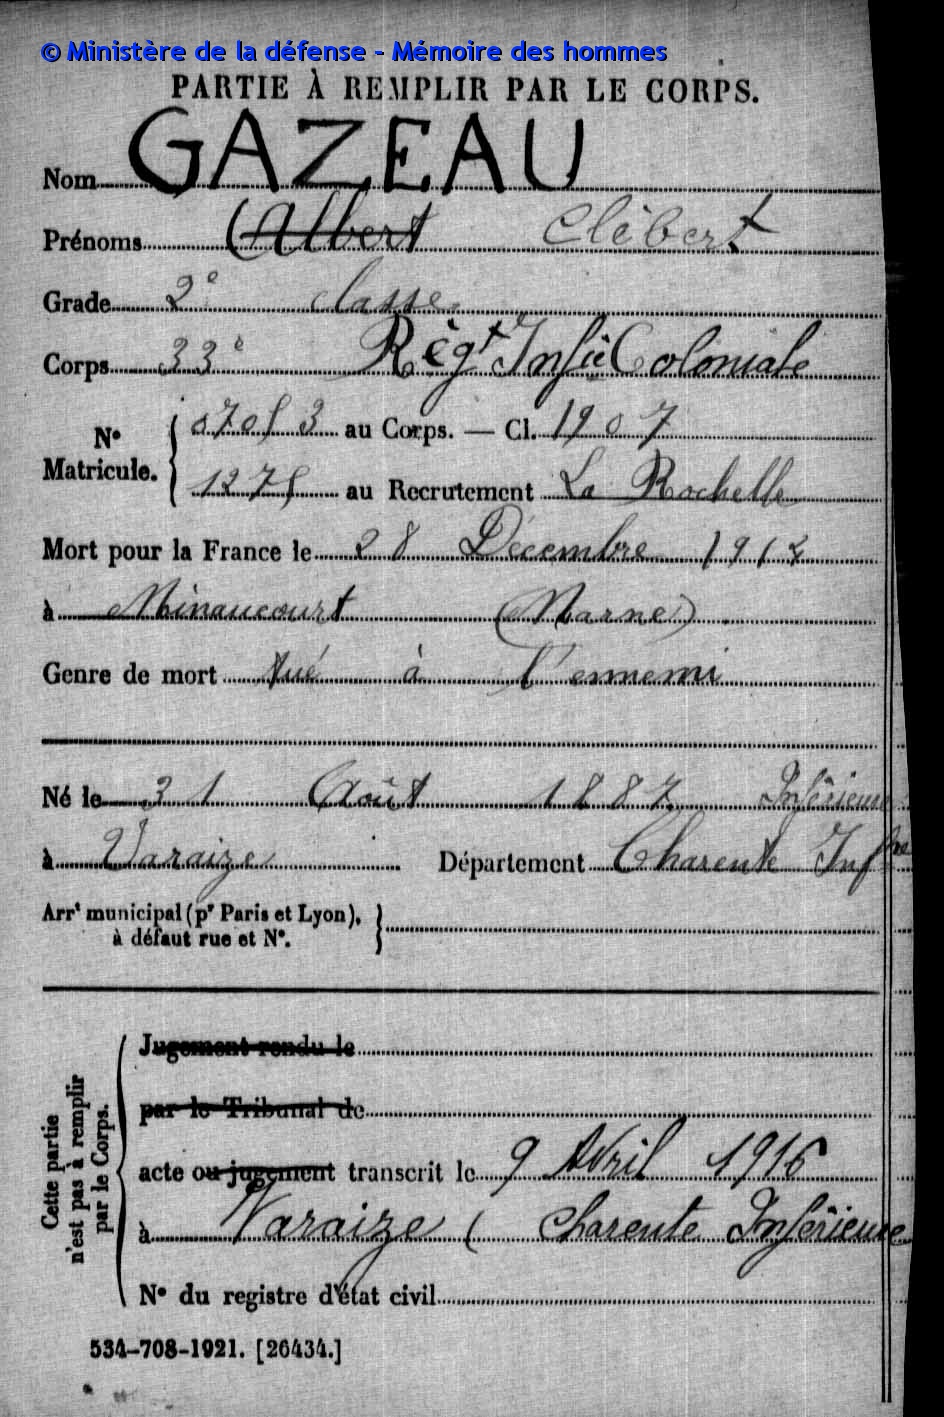 © Ministère de la défense - Mémoire des hommes
PARTIE À REMPLIR PAR LE CORPS.
Nom GAZEAU
Prénoms (Albert Clébert
Grade 2e classe
Corps 33e Régt Infie Coloniale
N° Matricule. { 07053 au Corps. — Cl. 1907
1275 au Recrutement La Rochelle
Mort pour la France le 28 Décembre 1914
à Minaucourt (Marne)
Genre de mort tué à l'ennemi
Né le 31 Août 1887 Inférieure
à Varaize Département Charente Infre
Arrt municipal (pr Paris et Lyon), à défaut rue et N°. }
Cette partie n'est pas à remplir par le Corps. {
Jugement rendu le
par le Tribunal de
acte ou jugement transcrit le 9 Avril 1916
à Varaize ( Charente Inférieure
N° du registre d'état civil
534-708-1921. [26434.]